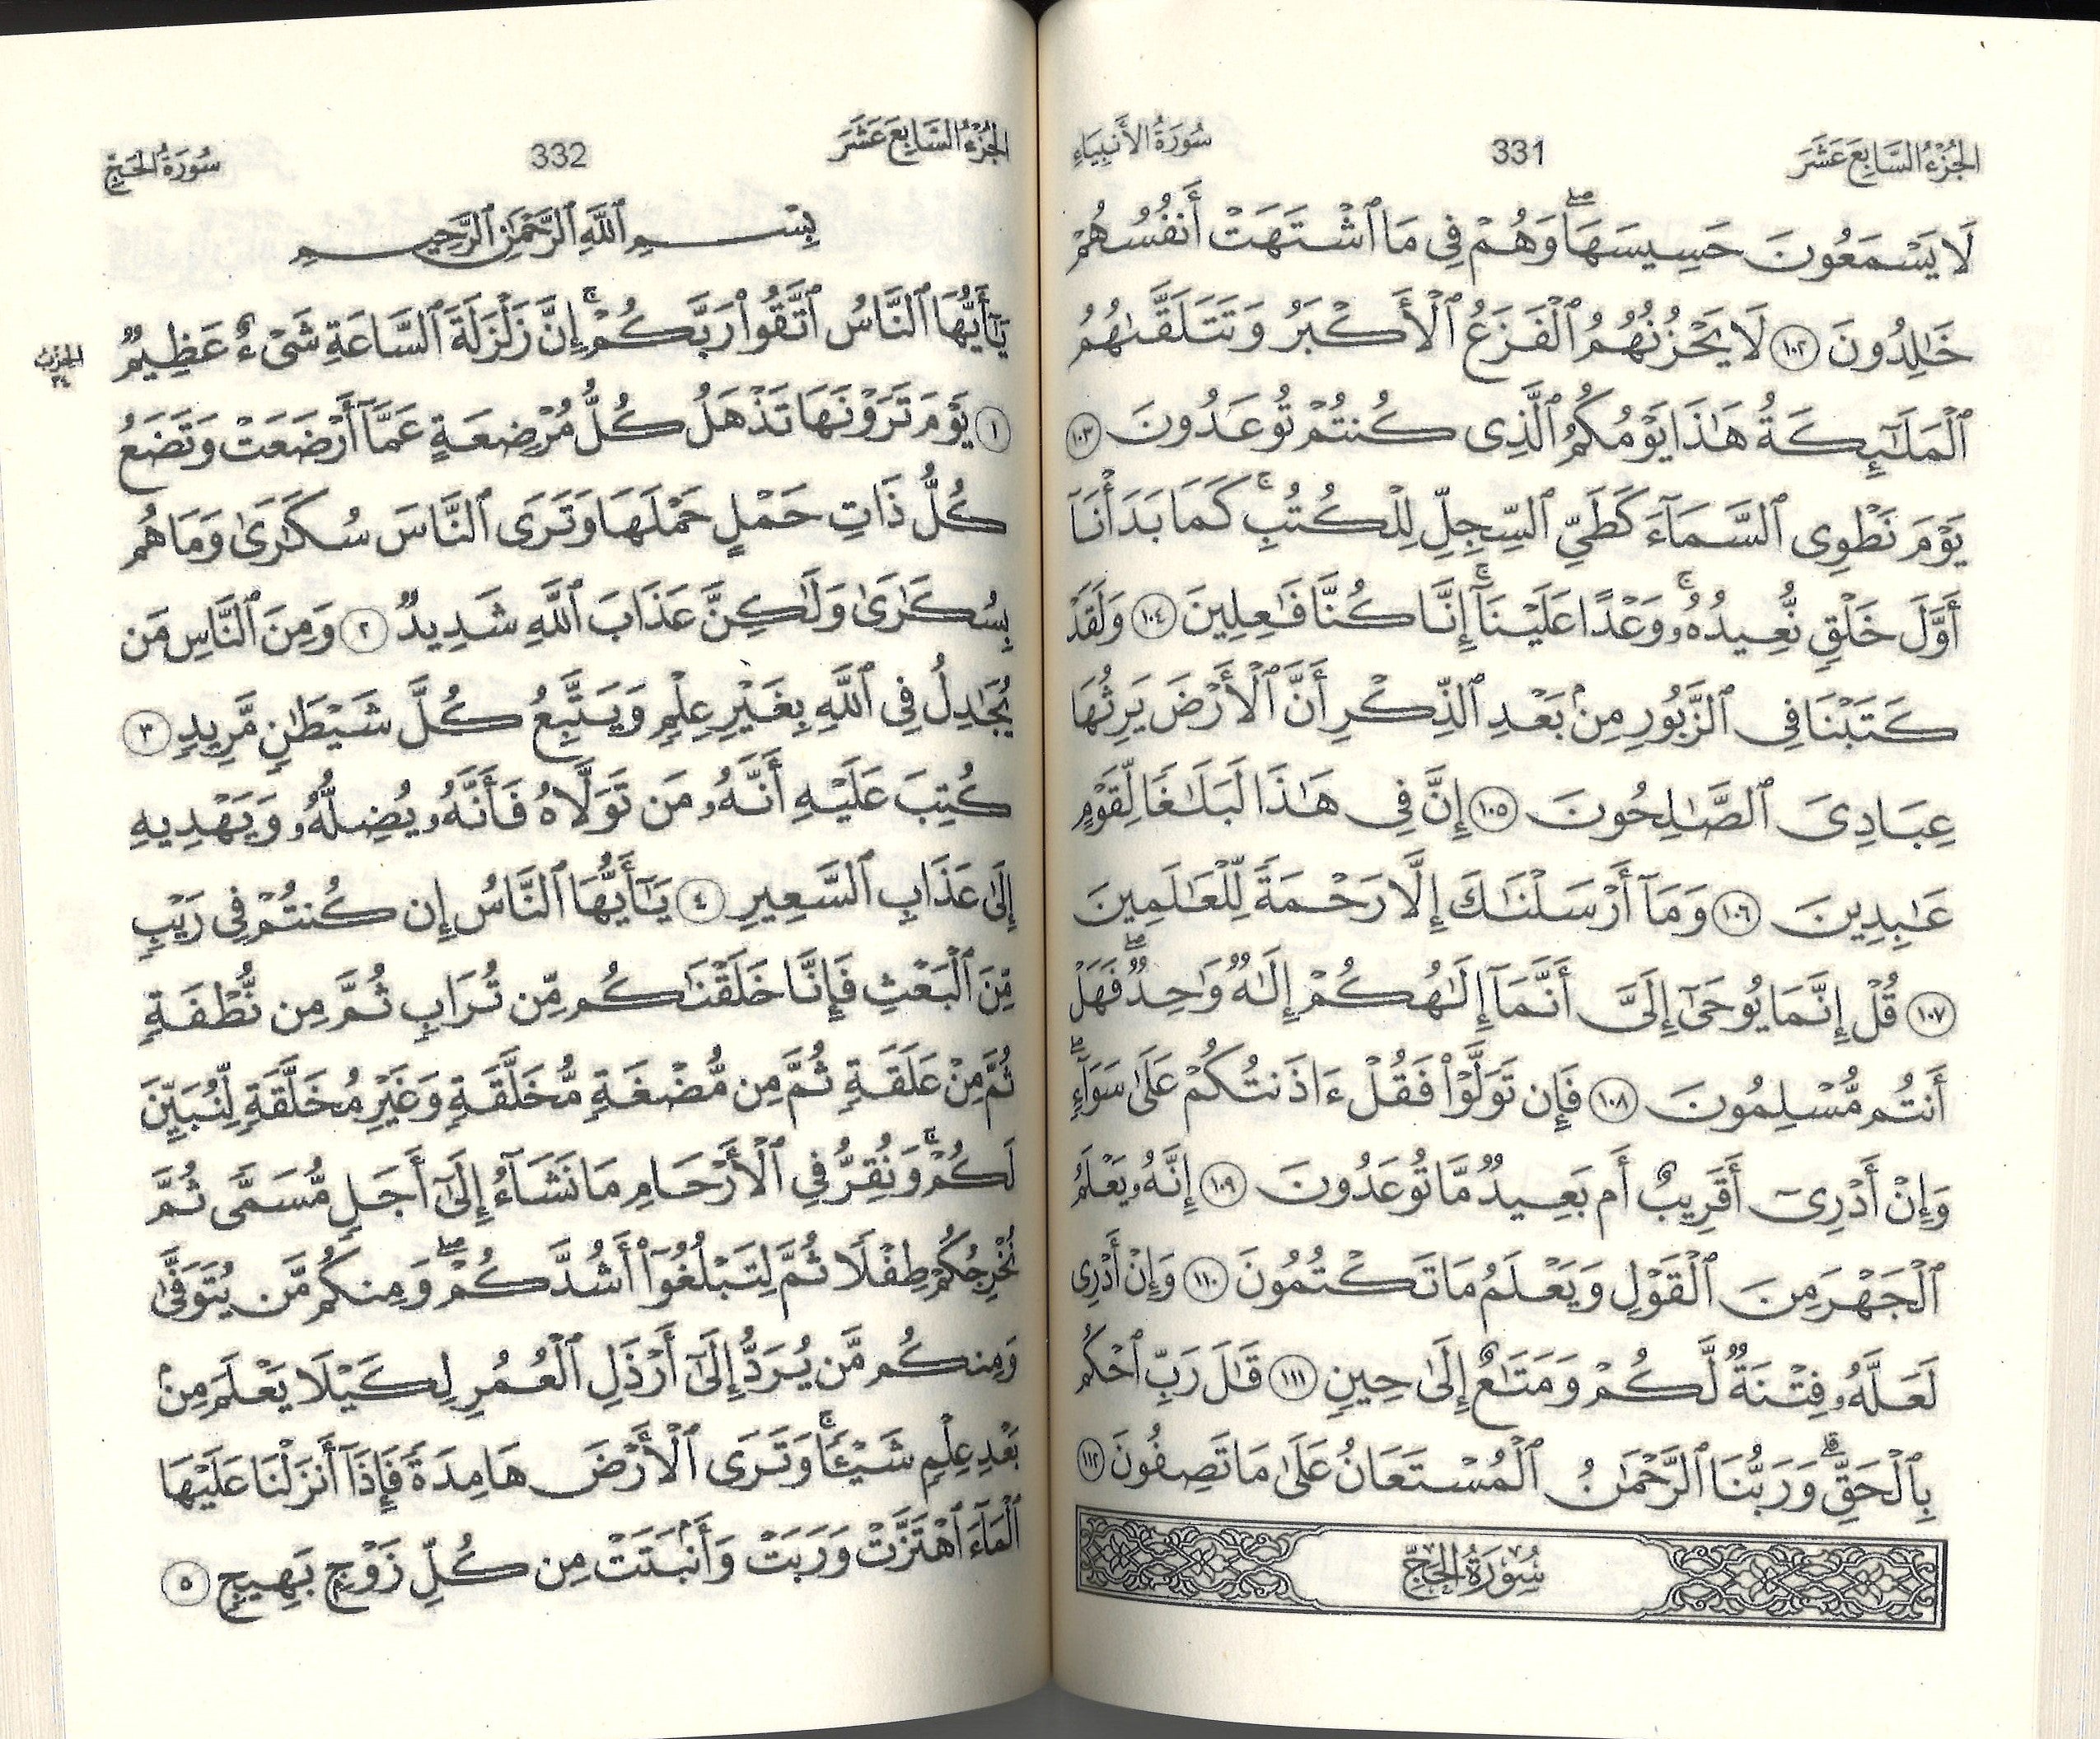 الجزء السابع عشر
331
سورة الأنبياء
لَا يَسْمَعُونَ حَسِيسَهَا ۖ وَهُمْ فِي مَا ٱشْتَهَتْ أَنفُسُهُمْ
خَٰلِدُونَ ١٠٢ لَا يَحْزُنُهُمُ ٱلْفَزَعُ ٱلْأَكْبَرُ وَتَتَلَقَّىٰهُمُ
ٱلْمَلَٰٓئِكَةُ هَٰذَا يَوْمُكُمُ ٱلَّذِي كُنتُمْ تُوعَدُونَ ١٠٣
يَوْمَ نَطْوِي ٱلسَّمَآءَ كَطَيِّ ٱلسِّجِلِّ لِلْكُتُبِ ۚ كَمَا بَدَأْنَآ
أَوَّلَ خَلْقٍ نُّعِيدُهُۥ ۚ وَعْدًا عَلَيْنَآ ۚ إِنَّا كُنَّا فَٰعِلِينَ ١٠٤ وَلَقَدْ
كَتَبْنَا فِي ٱلزَّبُورِ مِنۢ بَعْدِ ٱلذِّكْرِ أَنَّ ٱلْأَرْضَ يَرِثُهَا
عِبَادِيَ ٱلصَّٰلِحُونَ ١٠٥ إِنَّ فِي هَٰذَا لَبَلَٰغًا لِّقَوْمٍ
عَٰبِدِينَ ١٠٦ وَمَآ أَرْسَلْنَٰكَ إِلَّا رَحْمَةً لِّلْعَٰلَمِينَ
١٠٧ قُلْ إِنَّمَا يُوحَىٰٓ إِلَيَّ أَنَّمَآ إِلَٰهُكُمْ إِلَٰهٌ وَٰحِدٌ ۖ فَهَلْ
أَنتُم مُّسْلِمُونَ ١٠٨ فَإِن تَوَلَّوْا۟ فَقُلْ ءَاذَنتُكُمْ عَلَىٰ سَوَآءٍ ۖ
وَإِنْ أَدْرِيٓ أَقَرِيبٌ أَم بَعِيدٌ مَّا تُوعَدُونَ ١٠٩ إِنَّهُۥ يَعْلَمُ
ٱلْجَهْرَ مِنَ ٱلْقَوْلِ وَيَعْلَمُ مَا تَكْتُمُونَ ١١٠ وَإِنْ أَدْرِي
لَعَلَّهُۥ فِتْنَةٌ لَّكُمْ وَمَتَٰعٌ إِلَىٰ حِينٍ ١١١ قَٰلَ رَبِّ ٱحْكُم
بِٱلْحَقِّ ۗ وَرَبُّنَا ٱلرَّحْمَٰنُ ٱلْمُسْتَعَانُ عَلَىٰ مَا تَصِفُونَ ١١٢
سُورَةُ الحَجِّ
الجزء السابع عشر
332
سورة الحج
بِسْمِ ٱللَّهِ ٱلرَّحْمَٰنِ ٱلرَّحِيمِ
يَٰٓأَيُّهَا ٱلنَّاسُ ٱتَّقُوا۟ رَبَّكُمْ ۚ إِنَّ زَلْزَلَةَ ٱلسَّاعَةِ شَيْءٌ عَظِيمٌ
الحزب ٣٤
١ يَوْمَ تَرَوْنَهَا تَذْهَلُ كُلُّ مُرْضِعَةٍ عَمَّآ أَرْضَعَتْ وَتَضَعُ
كُلُّ ذَاتِ حَمْلٍ حَمْلَهَا وَتَرَى ٱلنَّاسَ سُكَٰرَىٰ وَمَا هُم
بِسُكَٰرَىٰ وَلَٰكِنَّ عَذَابَ ٱللَّهِ شَدِيدٌ ٢ وَمِنَ ٱلنَّاسِ مَن
يُجَٰدِلُ فِي ٱللَّهِ بِغَيْرِ عِلْمٍ وَيَتَّبِعُ كُلَّ شَيْطَٰنٍ مَّرِيدٍ ٣
كُتِبَ عَلَيْهِ أَنَّهُۥ مَن تَوَلَّاهُ فَأَنَّهُۥ يُضِلُّهُۥ وَيَهْدِيهِ
إِلَىٰ عَذَابِ ٱلسَّعِيرِ ٤ يَٰٓأَيُّهَا ٱلنَّاسُ إِن كُنتُمْ فِي رَيْبٍ
مِّنَ ٱلْبَعْثِ فَإِنَّا خَلَقْنَٰكُم مِّن تُرَابٍ ثُمَّ مِن نُّطْفَةٍ
ثُمَّ مِنْ عَلَقَةٍ ثُمَّ مِن مُّضْغَةٍ مُّخَلَّقَةٍ وَغَيْرِ مُخَلَّقَةٍ لِّنُبَيِّنَ
لَكُمْ ۚ وَنُقِرُّ فِي ٱلْأَرْحَامِ مَا نَشَآءُ إِلَىٰٓ أَجَلٍ مُّسَمًّى ثُمَّ
نُخْرِجُكُمْ طِفْلًا ثُمَّ لِتَبْلُغُوٓا۟ أَشُدَّكُمْ ۖ وَمِنكُم مَّن يُتَوَفَّىٰ
وَمِنكُم مَّن يُرَدُّ إِلَىٰٓ أَرْذَلِ ٱلْعُمُرِ لِكَيْلَا يَعْلَمَ مِنۢ
بَعْدِ عِلْمٍ شَيْـًٔا ۚ وَتَرَى ٱلْأَرْضَ هَامِدَةً فَإِذَآ أَنزَلْنَا عَلَيْهَا
ٱلْمَآءَ ٱهْتَزَّتْ وَرَبَتْ وَأَنۢبَتَتْ مِن كُلِّ زَوْجٍ بَهِيجٍ ٥